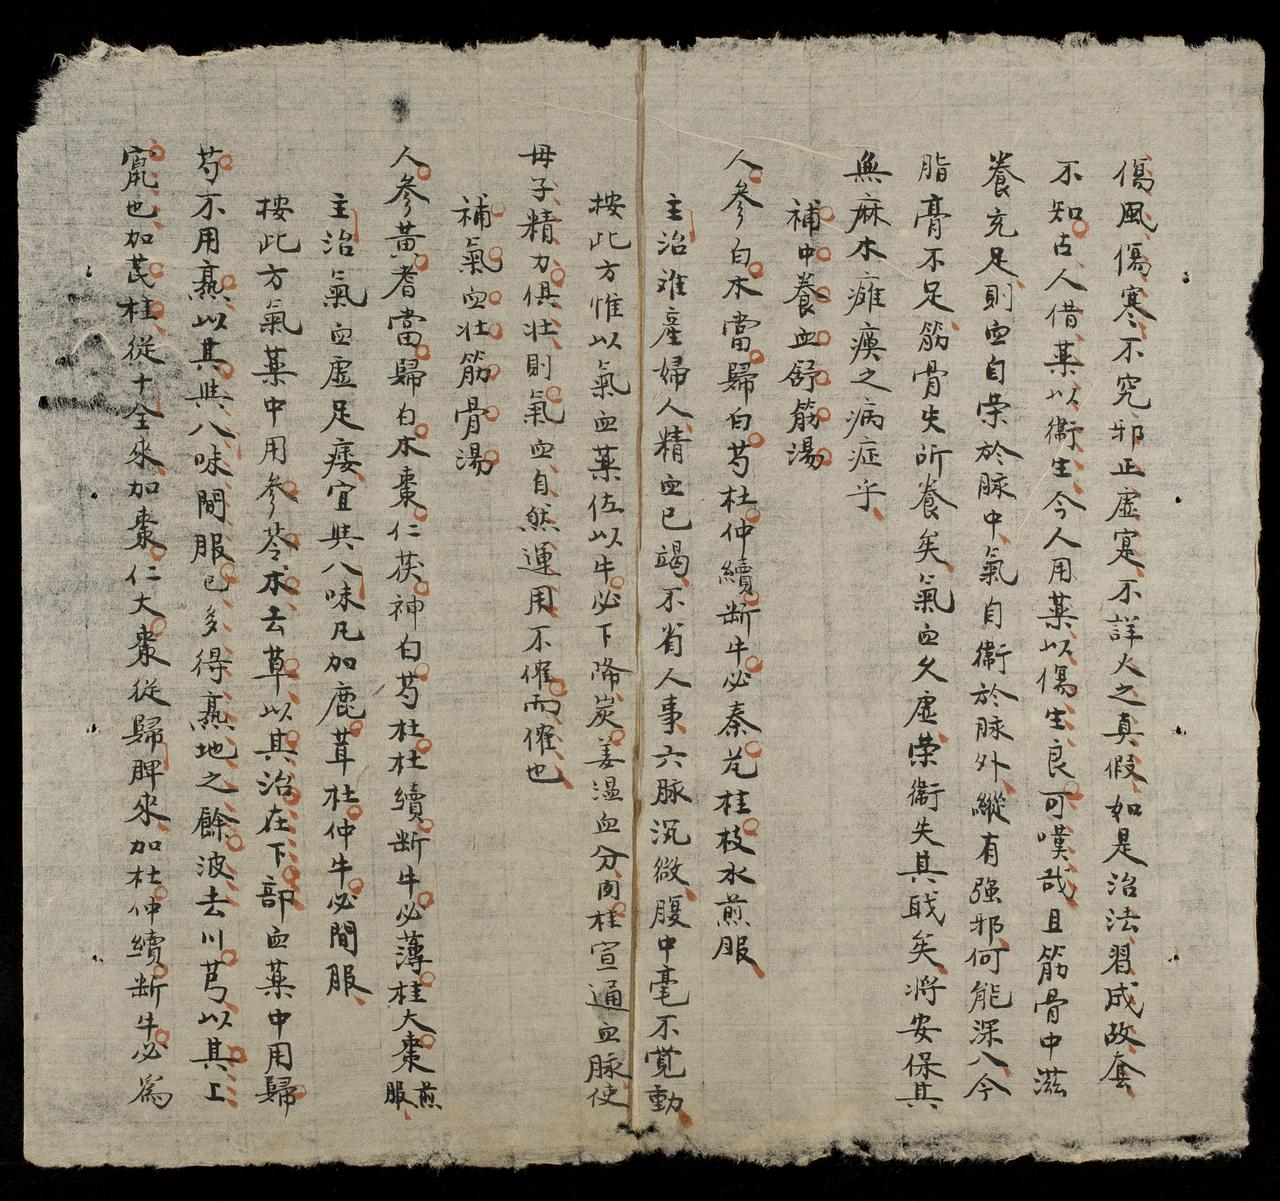 傷風傷寒不究邪正虛寔不詳火之真假如是治法習成故套
不知古人借藥以衞生今人用藥以傷生良可嘆哉且筋骨中滋
養充足則血自荣於脉中氣自衞於脉外縱有強邪何能深入今
脂膏不足筋骨失所養矣氣血久虛荣衞失其戝矣將安保其
無麻木癱瘓之病症乎
補中養血舒筋湯
人參白朮當歸白芍杜仲續断牛必秦芃桂枝水煎服
主治难産婦人精血已竭不省人事六脉沉微腹中毫不覚動
按此方惟以氣血藥佐以牛必下降炭姜温血分肉桂宣通血脉使
母子精力俱壮則氣血自然運用不催而催也
補氣血壮筋骨湯
人參黃耆當歸白朮棗仁茯神白芍杜杜續断牛必薄桂大棗煎服
主治氣血虛足痿宜與八味凡加鹿茸杜仲牛必間服
按此方氣藥中用參苓朮去草以其治在下部血藥中用歸
芍不用熟以其與八味間服已多得熟地之餘波去川芎以其上
竄也加芪桂從十全來加棗仁大棗從歸脾來加杜仲續断牛必為